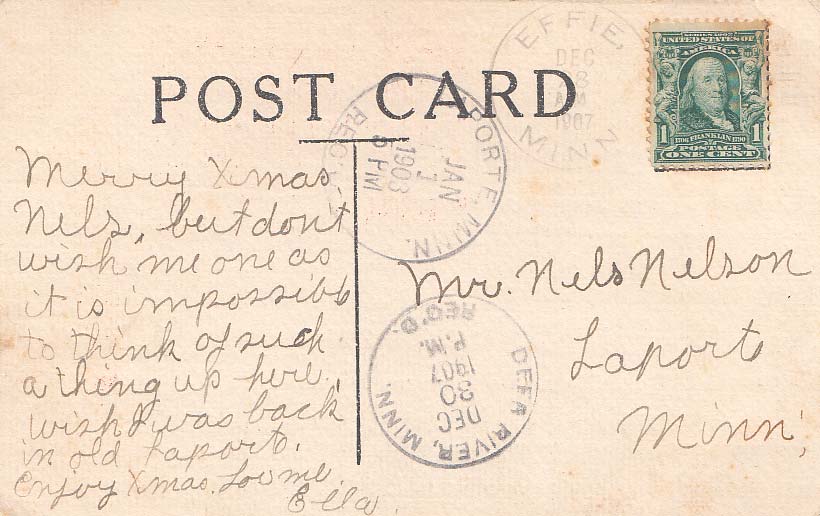 POST CARD
EFFIE,
DEC
8
A.M.
1907
MINN
SERIES 1902
UNITED STATES OF
AMERICA
1 1706 FRANKLIN 1790 1
POSTAGE
ONE CENT
LAPORTE, MINN.
JAN
1
1908
5 PM
REC'D
Merry Xmas,
Nels, but dont
wish me one as
it is impossible
to think of such
a thing up here.
wish I was back
in old Laporte.
Enjoy Xmas. for me.
Ella.
Mr. Nels Nelson
Laporte
Minn.
DEER RIVER, MINN.
DEC
30
1907
P.M.
REC'D.